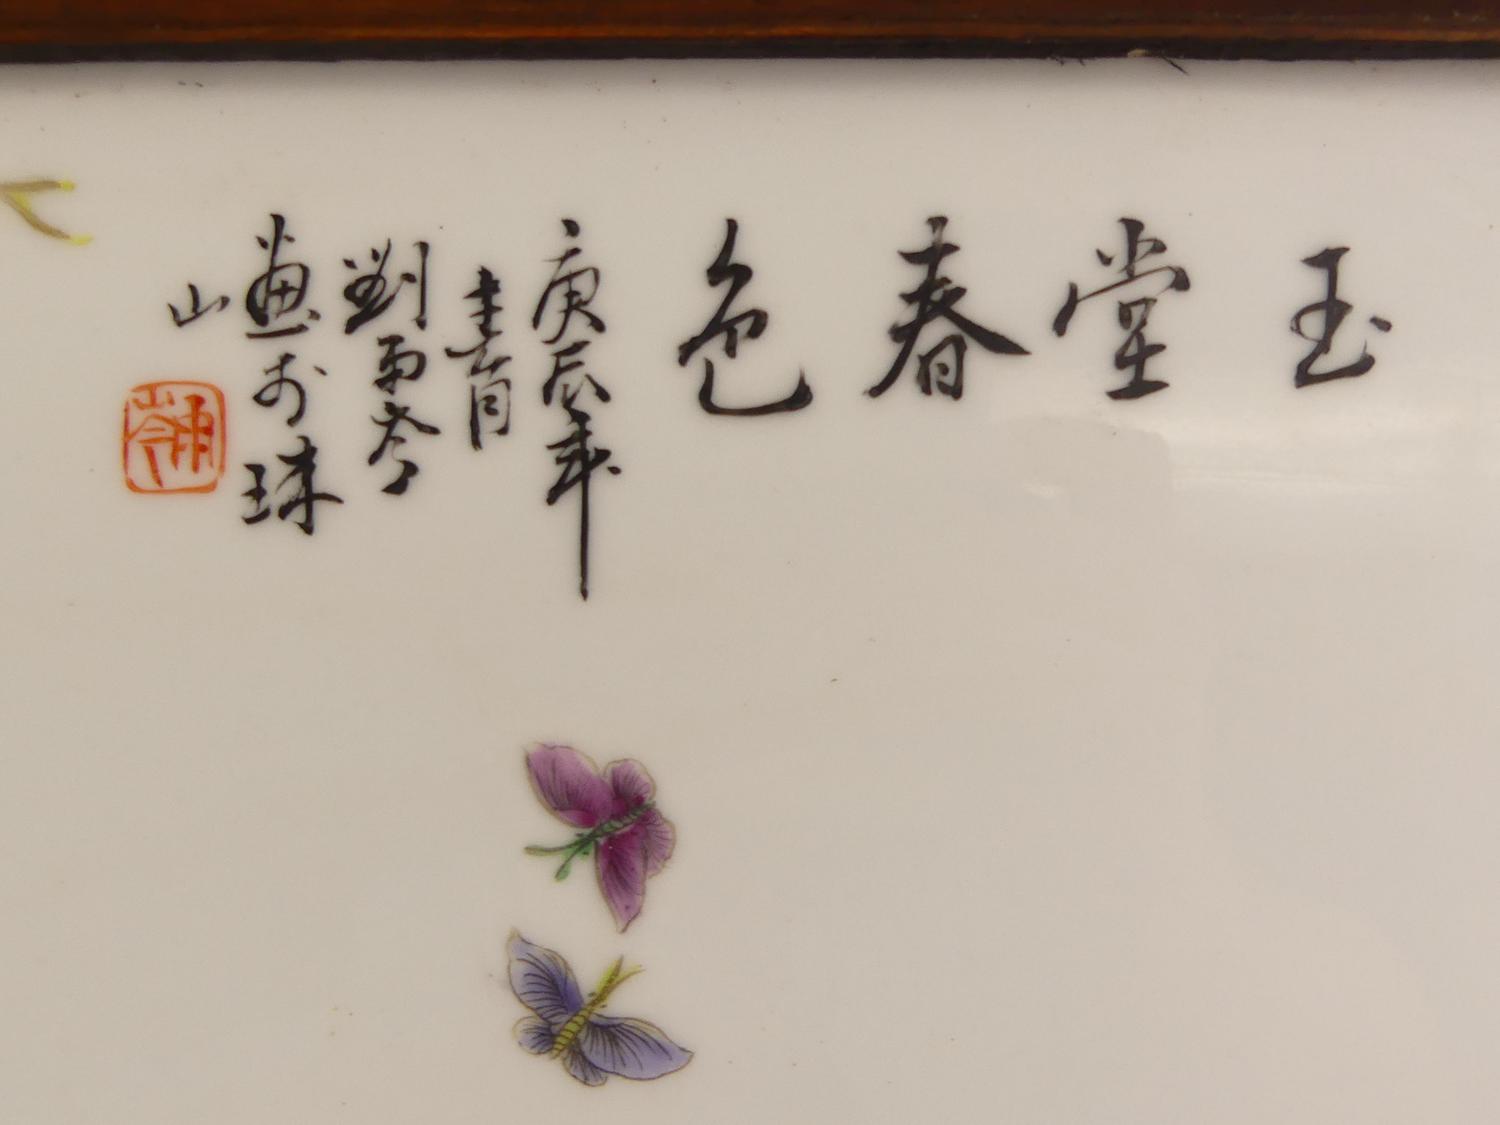 玉堂春色
庚辰年
劉雨岑
畫於珠
山
雨岑